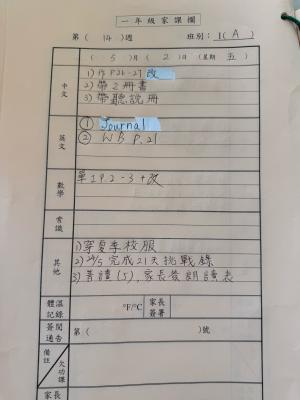 一年級家課欄
第( 14 )週 班別: 1(A)
( 5 )月( 2 )日(星期 五)
中文
1) 作P.26-27 改
2) 帶2冊書
3) 帶聽說冊
英文
① Journal
② WB P.21
數學
單19.2-3+改
常識
其他
1) 穿夏季校服
2) 29/5 完成21天挑戰錄
3) 菁讀(5), 家長簽朗讀表
體溫記錄
°F/°C
家長簽署
簽閱通告
第( )號
備註
欠功課
家長